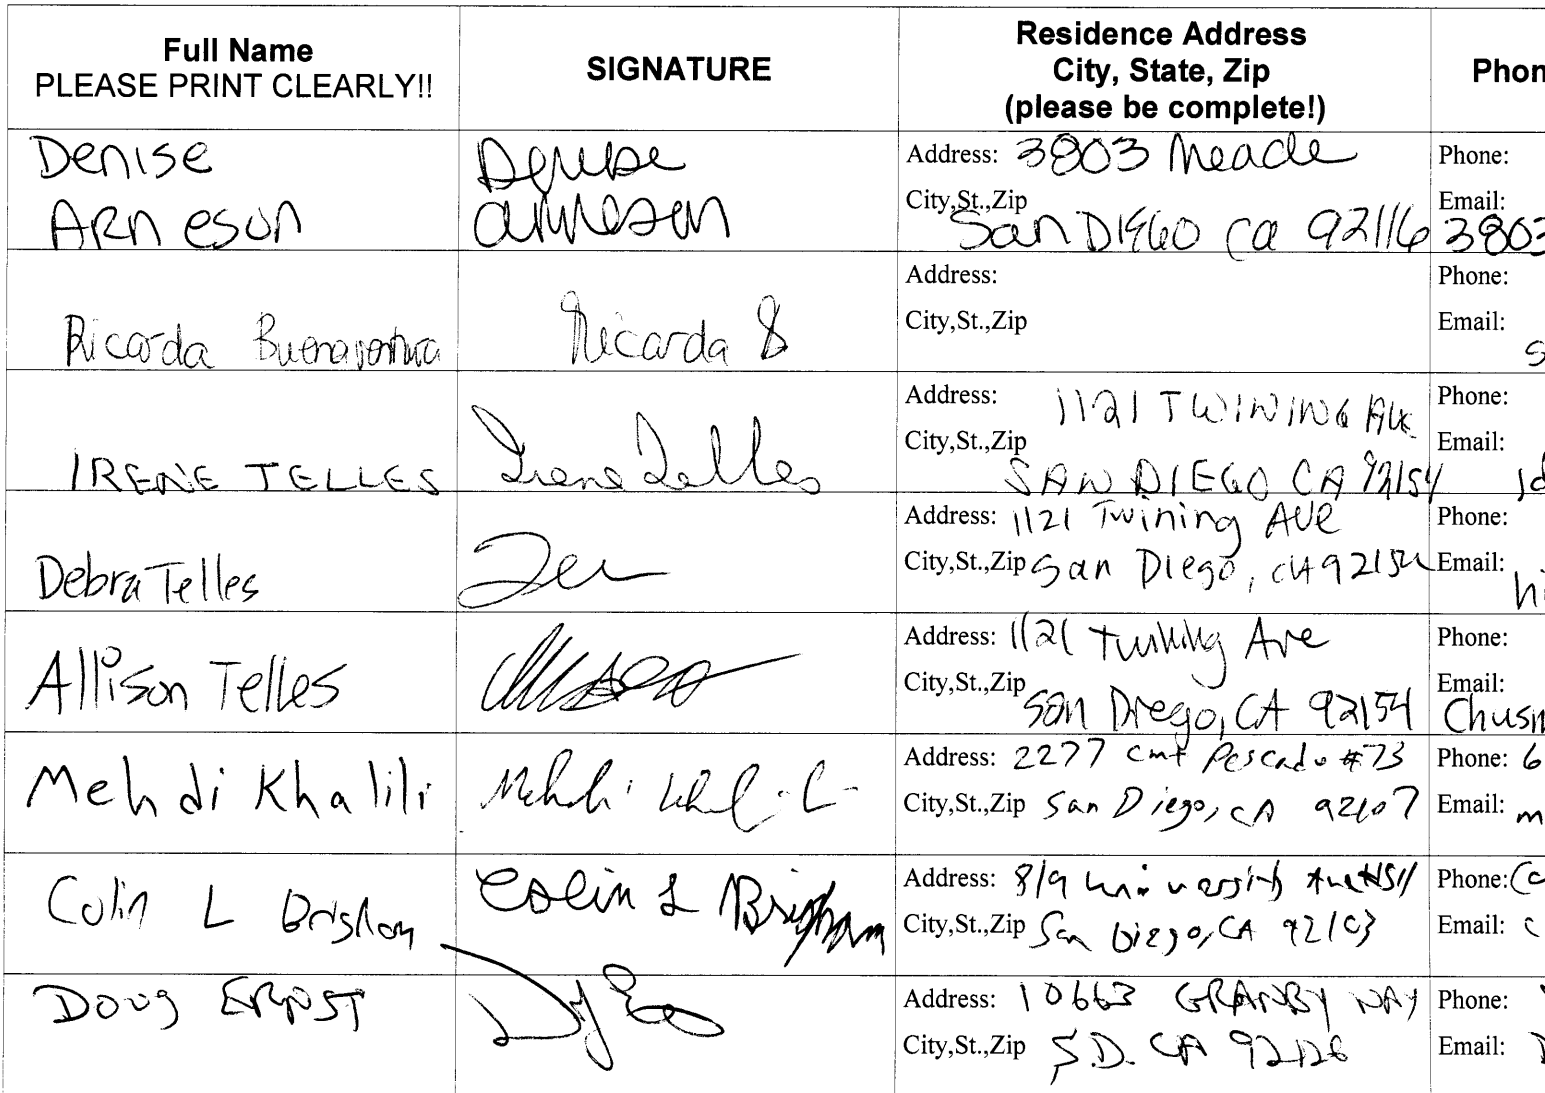 Full Name
PLEASE PRINT CLEARLY!!
SIGNATURE
Residence Address
City, State, Zip
(please be complete!)
Phon
Denise
Arneson
Denise
Arneson
Address: 3803 Meade
City,St.,Zip
San DIEGO Ca 92116
Phone:
Email:
3803
Ricarda Buenaventura
Ricarda B
Address:
City,St.,Zip
Phone:
Email:
S
IRENE TELLES
Irene Telles
Address: 1121 TWINING AVE
City,St.,Zip
SAN DIEGO CA 92154
Phone:
Email:
Debra Telles
Address: 1121 Twining AVE
City,St.,Zip San Diego, CA 92154
Phone:
Email:
hi
Allison Telles
Address: 1121 Twining Ave
City,St.,Zip
San Diego, CA 92154
Phone:
Email:
Chusm
Mehdi Khalili
Mehdi Khalili
Address: 2277 Cmt Pescado #73
City,St.,Zip San Diego, CA 92107
Phone: 6
Email: m
Colin L Brigham
Colin L Brigham
Address: 819 University Ave #511
City,St.,Zip San Diego, CA 92103
Phone: (
Email: c
Doug ERNST
Address: 10663 GRANBY WAY
City,St.,Zip S.D. CA 92126
Phone:
Email: D